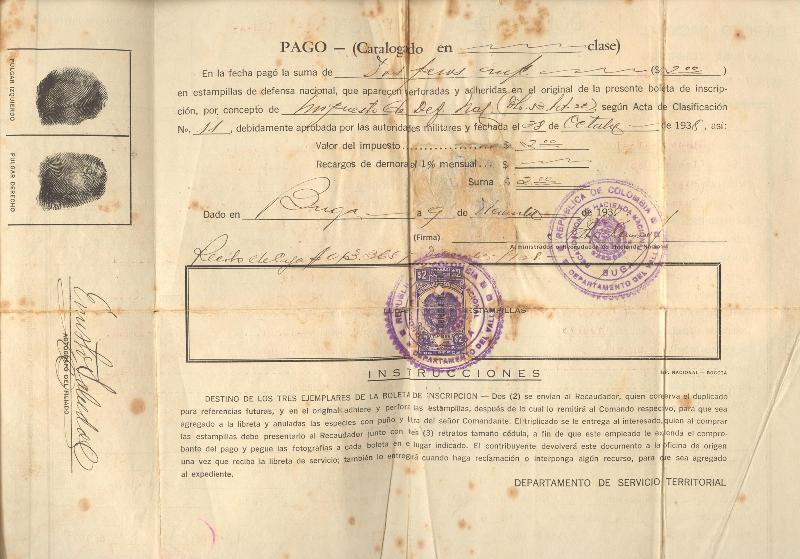 PAGO — (Catalogado en clase)
En la fecha pagó la suma de Dos pesos ($ 2.00)
en estampillas de defensa nacional, que aparecen perforadas y adheridas en el original de la presente boleta de inscrip-
ción, por concepto de Impuesto de Def. Nal. según Acta de Clasificación
No. 11, debidamente aprobada por las autoridades militares y fechada el 28 de Octubre de 1938, así:
Valor del impuesto $ 2.00
Recargos de demora al 1% mensual... $
Suma $ 2.00
Dado en Buga a 9 de de 1938
(Firma)
Administrador o Recaudador de Hacienda Nacional
REPUBLICA DE COLOMBIA
DE HACIENDA NACIONAL
BUGA
DEPARTAMENTO DEL VALLE
PULGAR IZQUIERDO
PULGAR DERECHO
AUTOGRAFO DEL FILIADO
$2 $2
ESTAMPILLAS
REPUBLICA COLOMBIA
NACIONAL
DEPARTAMENTO DEL VALLE
INSTRUCCIONES
IMP. NACIONAL — BOGOTA
DESTINO DE LOS TRES EJEMPLARES DE LA BOLETA DE INSCRIPCION — Dos (2) se envían al Recaudador, quien conserva el duplicado
para referencias futuras, y en el original adhiere y perfora las estampillas, después de lo cual lo remitirá al Comando respectivo, para que sea
agregado a la libreta y anuladas las especies con puño y letra del señor Comandante. El triplicado se le entrega al interesado, quien al comprar
las estampillas debe presentarlo al Recaudador junto con tres (3) retratos tamaño cédula, a fin de que este empleado le extienda el compro-
bante del pago y pegue las fotografías a cada boleta en el lugar indicado. El contribuyente devolverá este documento a la oficina de origen
una vez que reciba la libreta de servicio; también lo entregará cuando haga reclamación o interponga algún recurso, para que sea agregado
al expediente.
DEPARTAMENTO DE SERVICIO TERRITORIAL